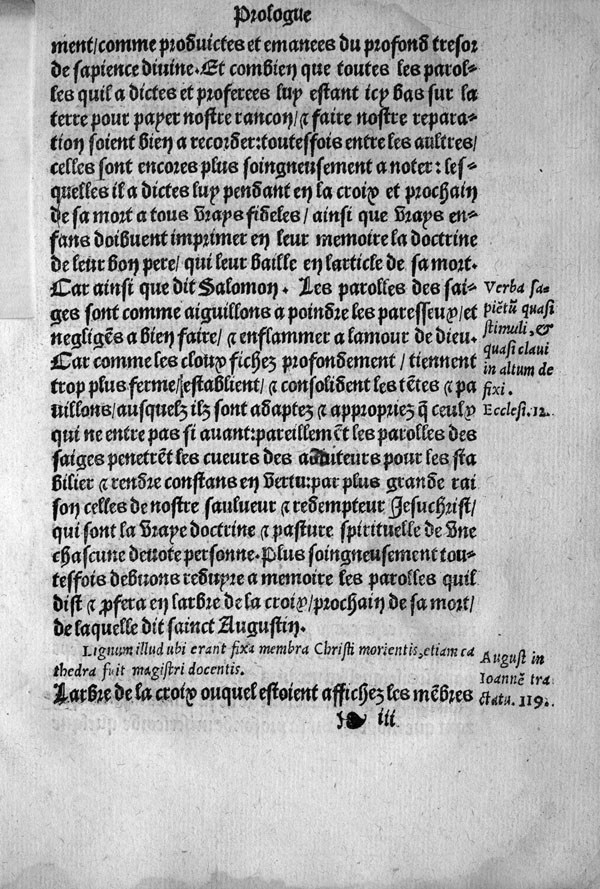 Prologue
ment/comme produictes et emanees du profond tresor
de sapience divine.Et combien que toutes les parol-
les quil a dictes et proferees luy estant icy bas sur la
terre pour payer nostre rancon/⁊ faire nostre repara-
tion soient bien a recorder:toutesfois entre les aultres/
celles sont encores plus soingneusement a noter: les-
quelles il a dictes luy pendant en la croix et prochain
de sa mort a tous vrays fideles/ainsi que vrays en-
fans doibuent imprimer en leur memoire la doctrine
de leur bon pere/ qui leur baille en larticle de sa mort.
Car ainsi que dit Salomon. Les parolles des sai-
ges sont comme aiguillons a poindre les paresseux/et
negligēs a bien faire/⁊ enflammer a lamour de dieu.
Car comme les cloux fichez profondement/tiennent
trop plus ferme/⁊establient/⁊ consolident les tētes ⁊ pa
uillons/ausquelz ilz sont adaptez ⁊ appropriez q̄ ceulx
qui ne entre pas si auant:pareillemēt les parolles des
saiges penetrēt les cueurs des auditeurs pour les sta
bilier ⁊ rendre constans en vertu:par plus grande rai
son celles de nostre saulueur ⁊ redempteur Jesuchrist/
qui sont la vraye doctrine ⁊ pasture spirituelle de vne
chascune deuote personne.Plus soingneusement tou-
tesfois debuons reduyre a memoire les parolles quil
dist ⁊ ꝓfera en larbre de la croix/prochain de sa mort/
de laquelle dit sainct Augustin.
Lignum illud ubi erant fixa membra Christi morientis,etiam ca
thedra fuit magistri docentis.
Larbre de la croix ouquel estoient affichez les mēbres
iii
Verba sa-
piētū quasi
stimuli, &
quasi claui
in altum de
fixi.
Ecclesi.12.
August in
Ioannē tra
ctatu. 119.